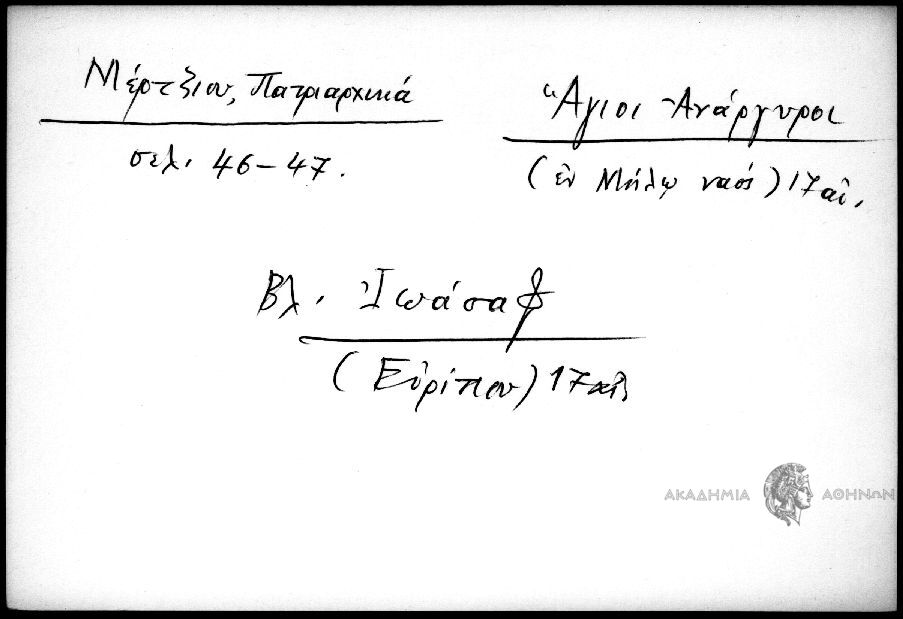 Μέρτζιου, Πατριαρχικά
σελ. 46-47.
Ἅγιοι Ἀνάργυροι
(ἐν Μήλῳ ναός) 17 αἰ.
Βλ. Ἰωάσαφ
(Εὐρίπου) 17 αἰ.
ΑΚΑΔΗΜΙΑ ΑΘΗΝΩΝ